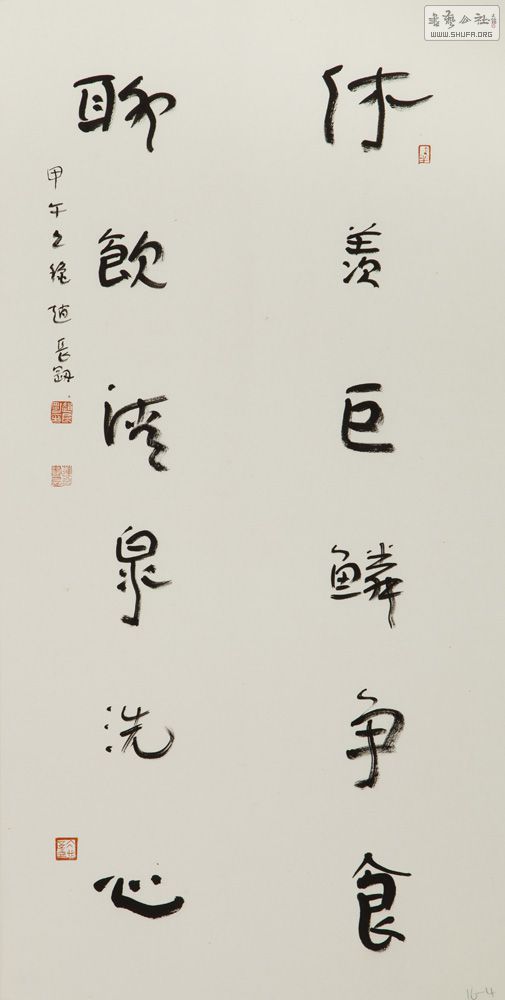 書藝公社
WWW.SHUFA.ORG
休羨巨鱗争食
聊飲清泉洗心
甲午之穐趙長
16-4